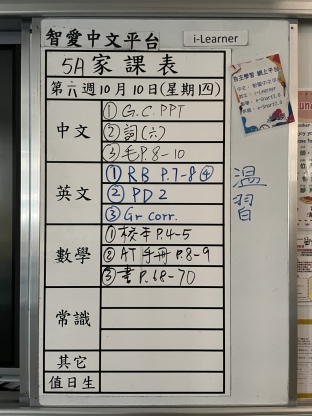 智愛中文平台
i-Learner
5A 家課表
第六週10月10日(星期四)
中文
① G.C. PPT
② 詞(六)
③ 毛P.8-10
英文
① RB P.7-8 ④
② PD 2
③ Gr Corr.
數學
① 校本 P.4-5
② AT手冊 P.8-9
③ 書 P.68-70
常識
其它
值日生
溫習
自主學習 網上平台